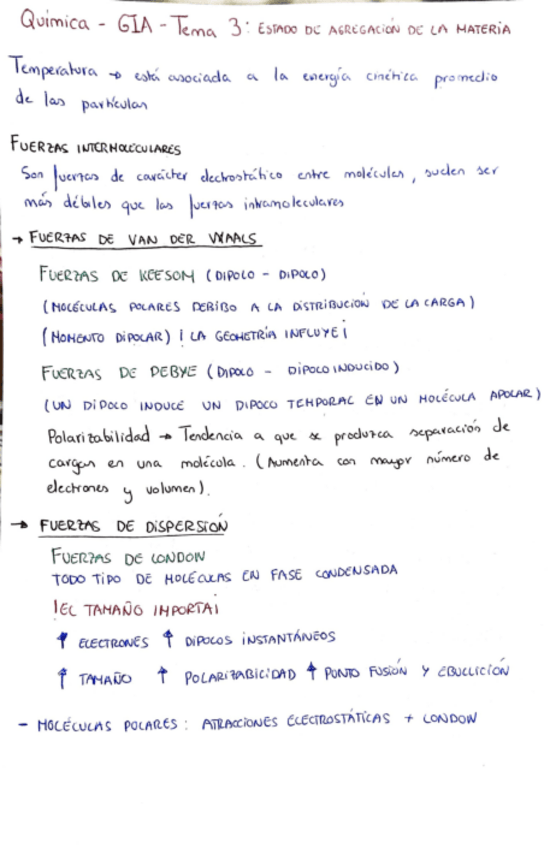 Química - GIA - Tema 3: ESTADO DE AGREGACIÓN DE LA MATERIA
Temperatura → está asociada a la energía cinética promedio
de las partículas
FUERZAS INTERMOLECULARES
Son fuerzas de carácter electrostático entre moléculas, suelen ser
más débiles que las fuerzas intramoleculares
→ FUERZAS DE VAN DER WAALS
FUERZAS DE KEESOM (DIPOLO - DIPOLO)
(MOLÉCULAS POLARES DEBIDO A LA DISTRIBUCIÓN DE LA CARGA)
(MOMENTO DIPOLAR) ! LA GEOMETRÍA INFLUYE ¡
FUERZAS DE DEBYE (DIPOLO - DIPOLO INDUCIDO)
(UN DIPOLO INDUCE UN DIPOLO TEMPORAL EN UN MOLÉCULA APOLAR)
Polarizabilidad → Tendencia a que se produzca separación de
cargas en una molécula. (Aumenta con mayor número de
electrones y volumen).
→ FUERZAS DE DISPERSIÓN
FUERZAS DE LONDON
TODO TIPO DE MOLÉCULAS EN FASE CONDENSADA
!EL TAMAÑO IMPORTA¡
↑ ELECTRONES ↑ DIPOLOS INSTANTÁNEOS
↑ TAMAÑO ↑ POLARIZABILIDAD ↑ PUNTO FUSIÓN Y EBULLICIÓN
- MOLÉCULAS POLARES: ATRACCIONES ELECTROSTÁTICAS + LONDON